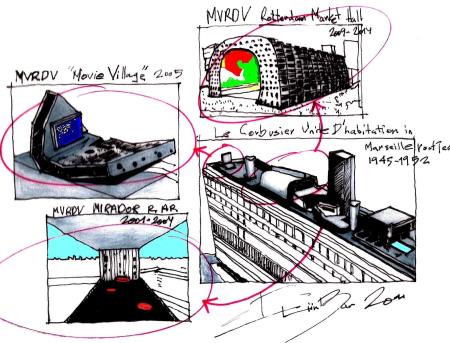 MVRDV Rotterdam Market Hall
2009-2014
MVRDV "Movie Village" 2005
Le Corbusier Unite D'habitation in
Marseille
1945-1952
MVRDV MIRADOR
2001-2004